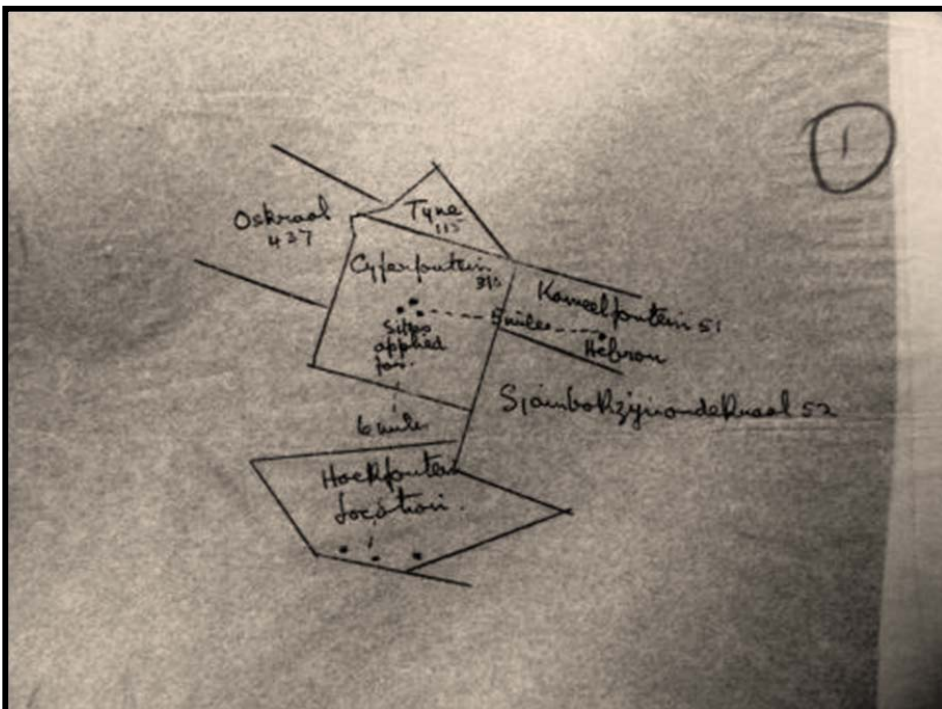 1
Oskraal
437
Tyne
115
Cyferfontein
315
Kameelfontein 51
5 miles
Hebron
Sites
applied
for.
Sjambokzijnoudekraal 52
6 miles
Hockfontein
Location.